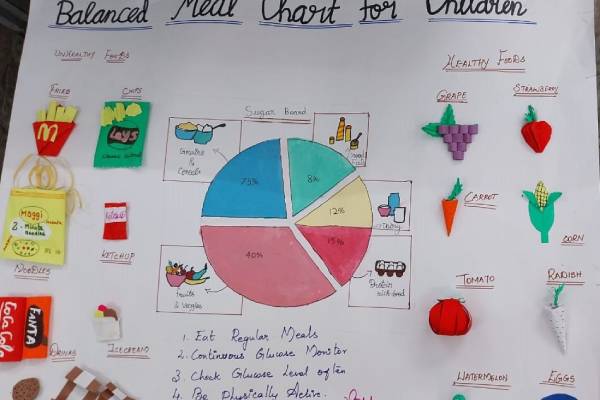 Balanced Meal Chart for Children
UnHealthy Foods
Healthy Foods
Fries
Chips
Grape
Strawberry
Sugar Board
Lays
Grains
&
Cereals
75%
8%
12%
15%
40%
Dairy
Carrot
Corn
Maggi
2-Minute
Noodles
Ketchup
Noodles
Fruits
& Veggies
Protein
Rich food
Tomato
Radish
Coca
Cola
FANTA
Drinks
Icecream
1. Eat Regular Meals
2. Continuous Glucose Monitor
3. Check Glucose Level often
4. Be Physically Active.
Watermelon
Eggs